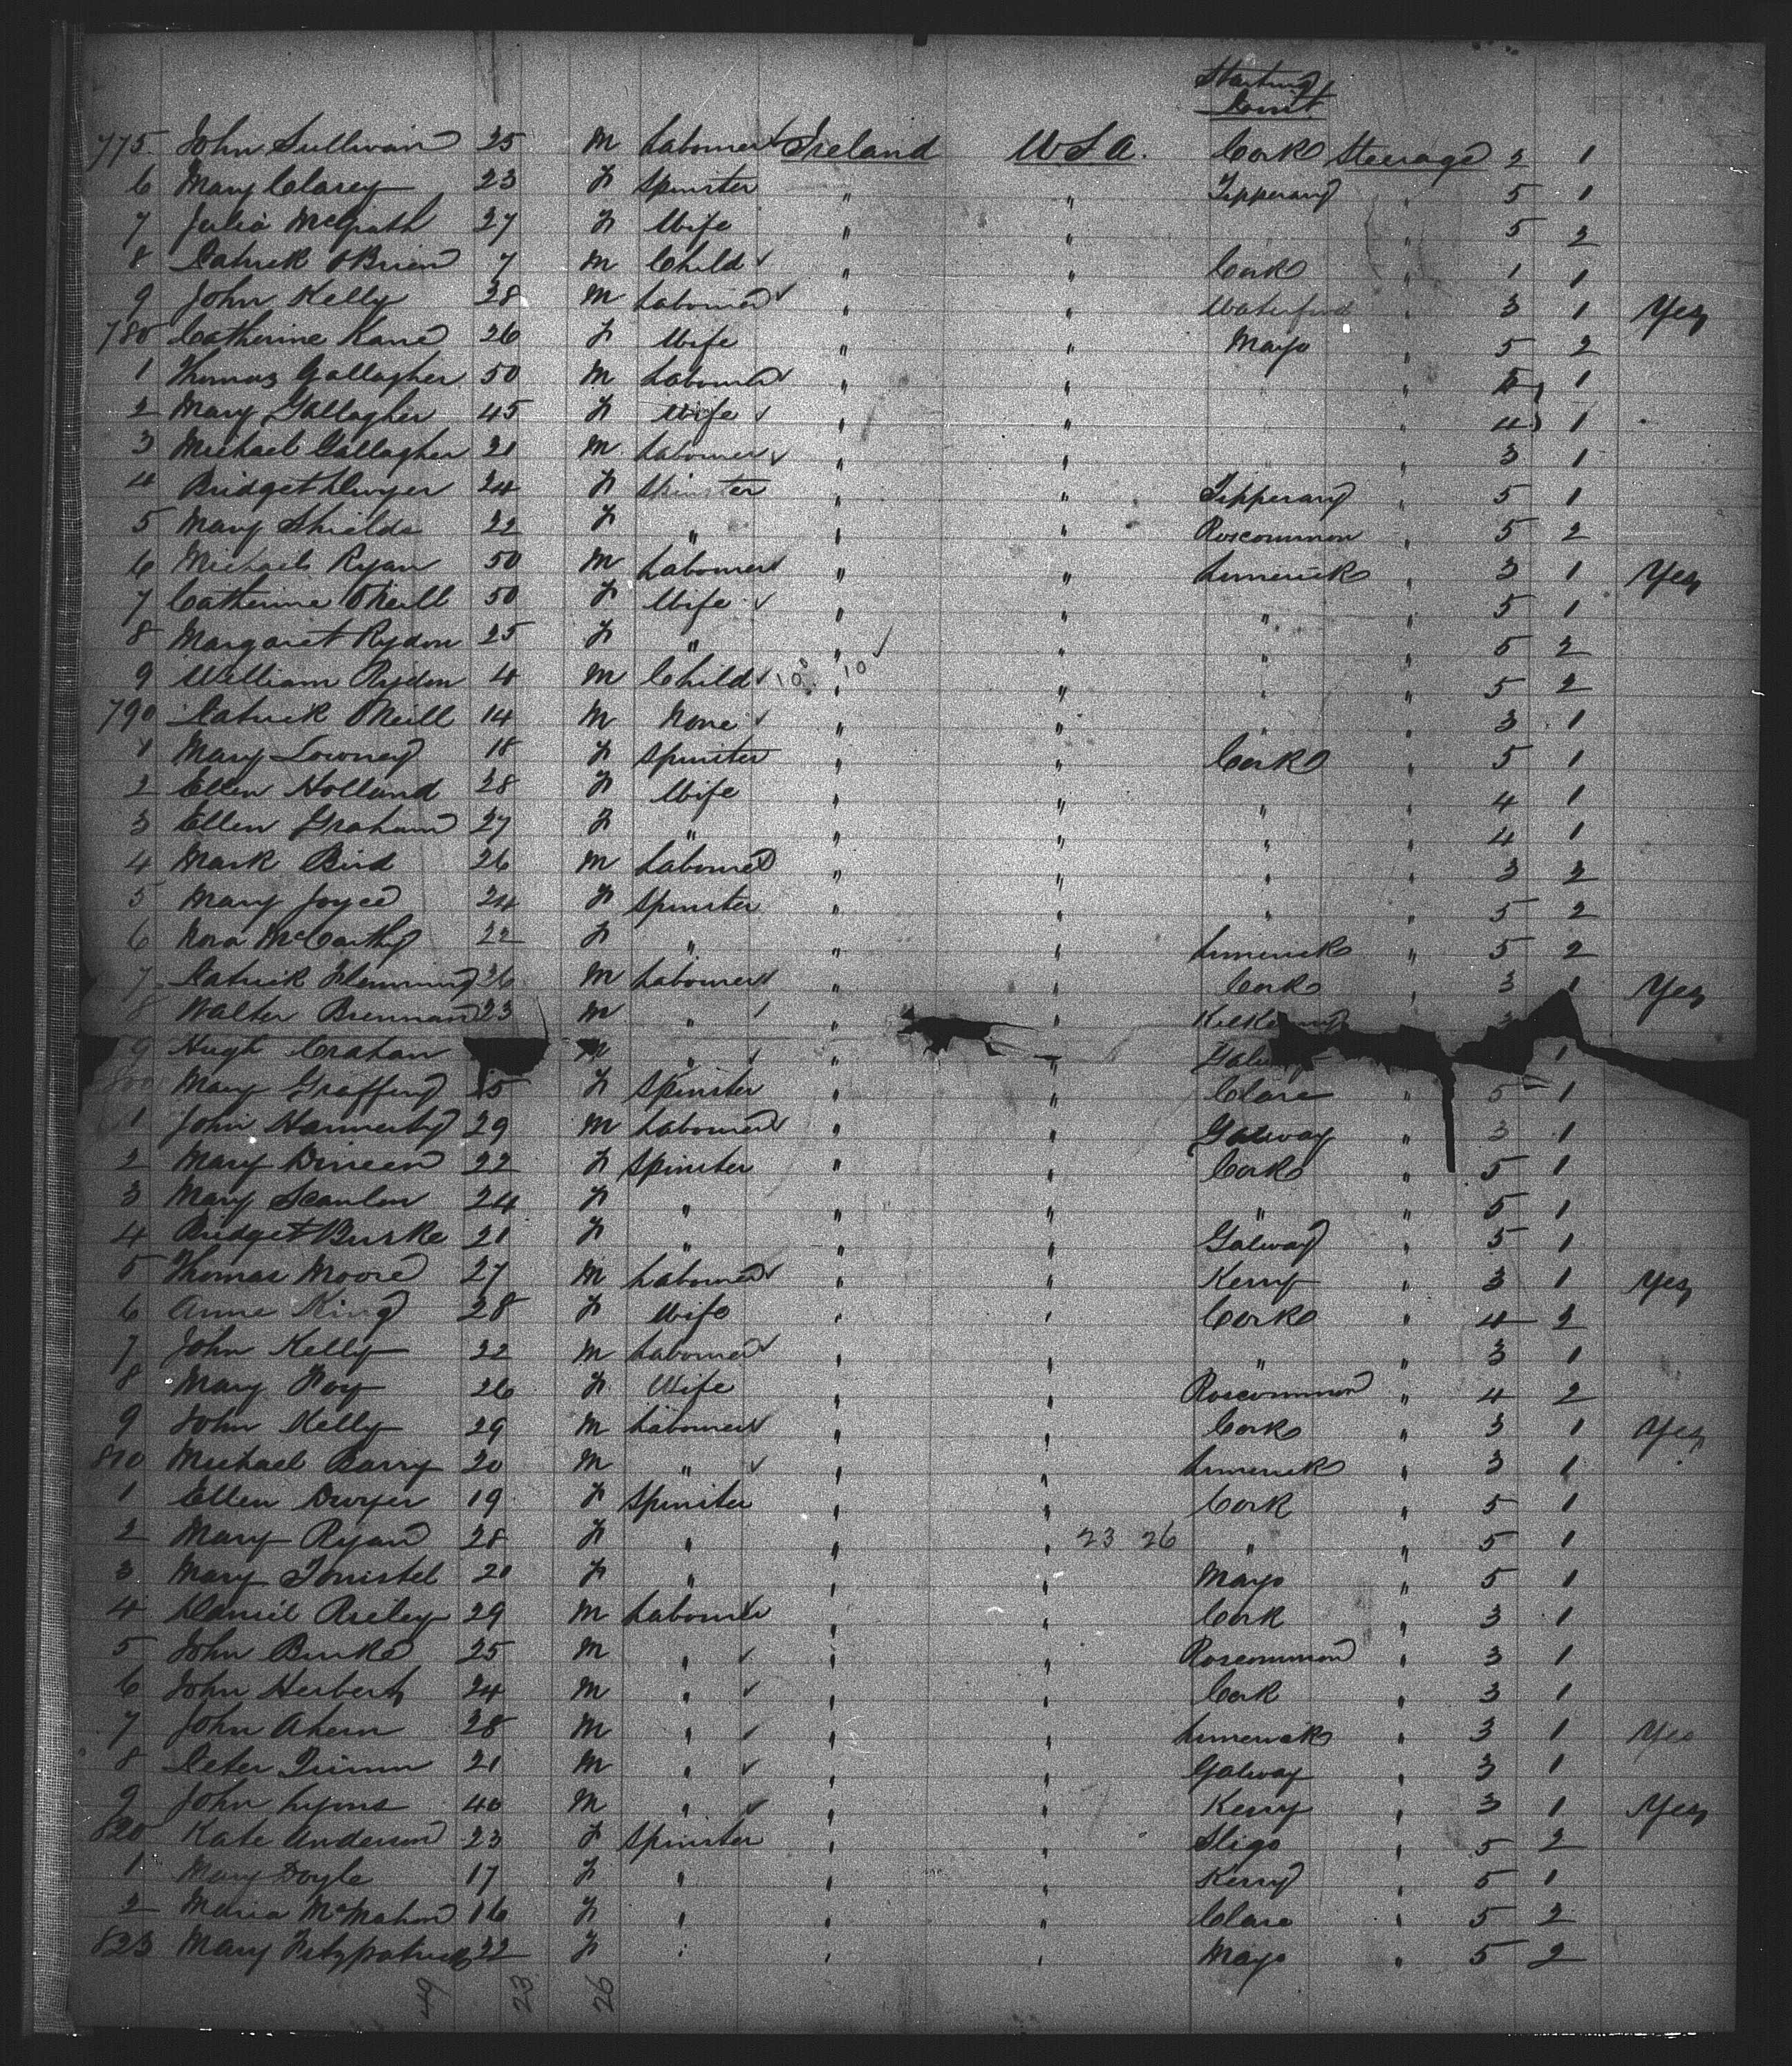 Starting
Point.
775. John Sullivan 25 M Labourer Ireland U S A. Cork Steerage 2 1
6 Mary Clarey 23 F Spinster " " Tipperary " 5 1
7 Julia McGrath 27 F Wife " " " 5 2
8 Patrick O'Brien 7 M Child " " Cork " 1 1
9 John Kelly 28 M Labourer " " Waterford " 3 1 Yes
780 Catherine Kane 26 F Wife " " Mayo " 5 2
1 Thomas Gallagher 50 M Labourer " " " 1
2 Mary Gallagher 45 F Wife " " " 4 1
3 Michael Gallagher 21 M Labourer " " " 3 1
4 Bridget Dwyer 24 F Spinster " " Tipperary " 5 1
5 Mary Shields 22 F " " " Roscommon " 5 2
6 Michael Ryan 50 M Labourer " " Limerick " 3 1 Yes
7 Catherine O'Neill 50 F Wife " " " " 5 1
8 Margaret Rydon 25 F " " " " " 5 2
9 William Rydon 4 M Child 10 10 " " " " 5 2
790 Patrick O'Neill 14 M None " " " " 3 1
1 Mary Lowney 18 F Spinster " " Cork " 5 1
2 Ellen Holland 28 F Wife " " " " 4 1
3 Ellen Graham 27 F " " " " " 4 1
4 Mark Bird 26 M Labourer " " " " 3 2
5 Mary Joyce 24 F Spinster " " " " 5 2
6 Nora McCarthy 22 F " " " Limerick " 5 2
7 Patrick Flemming 26 M Labourer " " Cork " 3 1 Yes
8 Walter Brennan 23 M " " " Kilkenny 3
9 Hugh Crahan M " " " Galway 1
800 Mary Graffin 5 F Spinster " " Clare " 5 1
1 John Hannerty 29 M Labourer " " Galway " 3 1
2 Mary Dineen 22 F Spinster " " Cork " 5 1
3 Mary Scanlon 24 F " " " " " 5 1
4 Bridget Burke 21 F " " " Galway " 5 1
5 Thomas Moore 27 M Labourer " " Kerry " 3 1 Yes
6 Anne King 28 F Wife " " Cork " 4 2
7 John Kelly 22 M Labourer " " " " 3 1
8 Mary Foy 26 F Wife " " Roscommon " 4 2
9 John Kelly 29 M Labourer " " Cork " 3 1 Yes
810 Michael Barry 20 M " " " Limerick " 3 1
1 Ellen Dwyer 19 F Spinster " " Cork " 5 1
2 Mary Ryan 28 F " " " 23 26 " " 5 1
3 Mary 21 F " " " Mayo " 5 1
4 Daniel Reiley 29 M Labourer " " Cork " 3 1
5 John Burke 25 M " " " Roscommon " 3 1
6 John Herbert 24 M " " " Cork " 3 1
7 John Ahern 28 M " " " Limerick " 3 1 Yes
8 Peter 21 M " " " Galway " 3 1
9 John Lyons 40 M " " " Kerry " 3 1 Yes
820 Kate Anderson 23 F Spinster " " Sligo " 5 2
1 Mary Doyle 17 F " " " Kerry " 5 1
2 Maria McMahon 16 F " " " Clare " 5 2
823 Mary Fitzpatrick 22 F " " " Mayo " 5 2
49 23 26